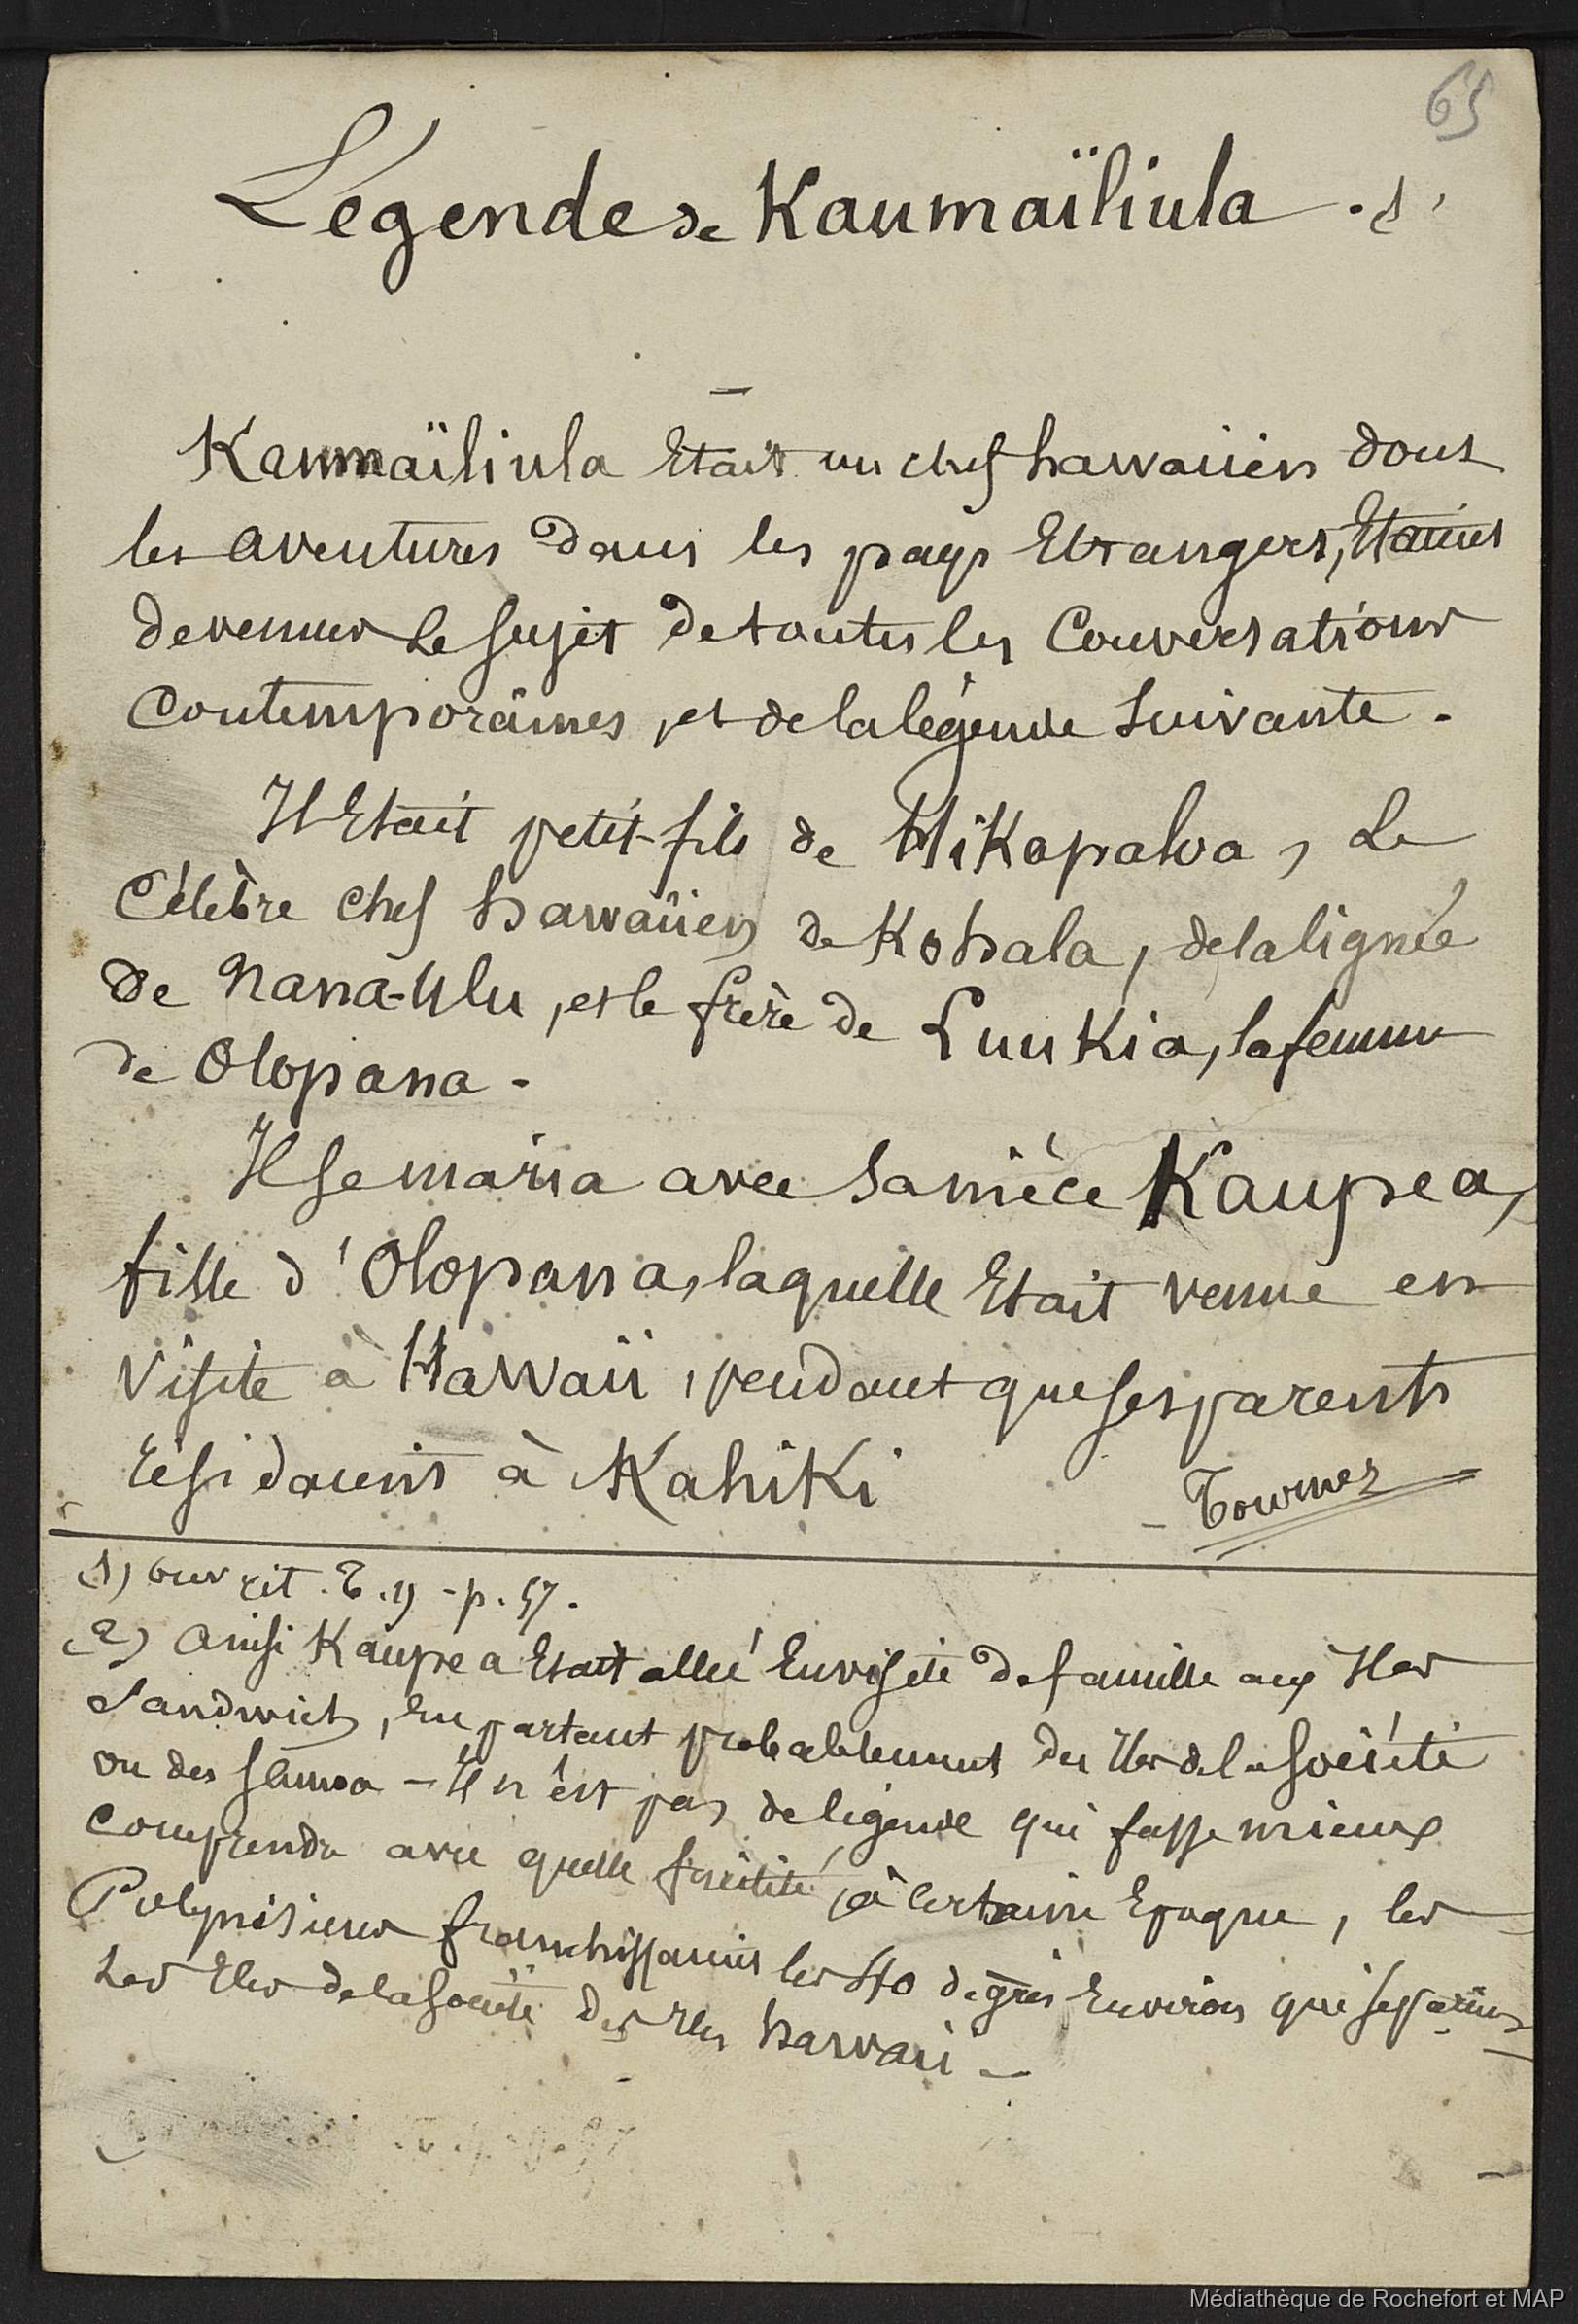 65
Légende de Kaumaïliula . 1.
Kaumaïliula Etait un chef hawaiien dont
les aventures dans les pays Etrangers, Etaient
devenues le sujet de toutes les Conversations
Contemporaines, et de la légende suivante.
Il Etait petit-fils de Hikapaloa, Le
Célèbre chef hawaiien de Kohala, de la lignée
de Nana-Ulu, et le frère de Luukia, la femme
de Olopana.
Il se maria avec sa nièce Kaupea,
fille d'Olopana, laquelle Etait venue en
visite à Hawaii, pendant que ses parents
résidaient à Kahiki
- Tournez
(1) ouv cit. T. II - p. 57.
(2) Ainsi Kaupea Etait allée En visite de famille aux Iles
Sandwich, En partant probablement des Iles de la Société
ou des Samoa - Il n'est pas de légende qui fasse mieux
comprendre avec quelle facilité, à certaine Epoque, les
Polynésiens franchissaient les 40 degrés Environ qui séparent
les Iles de la Société des Iles hawaii -
Médiathèque de Rochefort et MAP